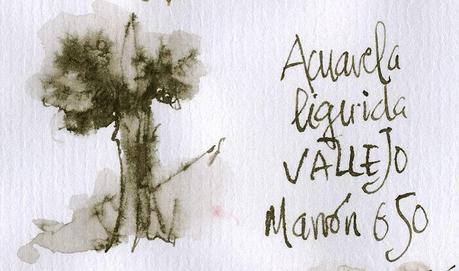 Acuarela
líquida
VALLEJO
Marrón 650